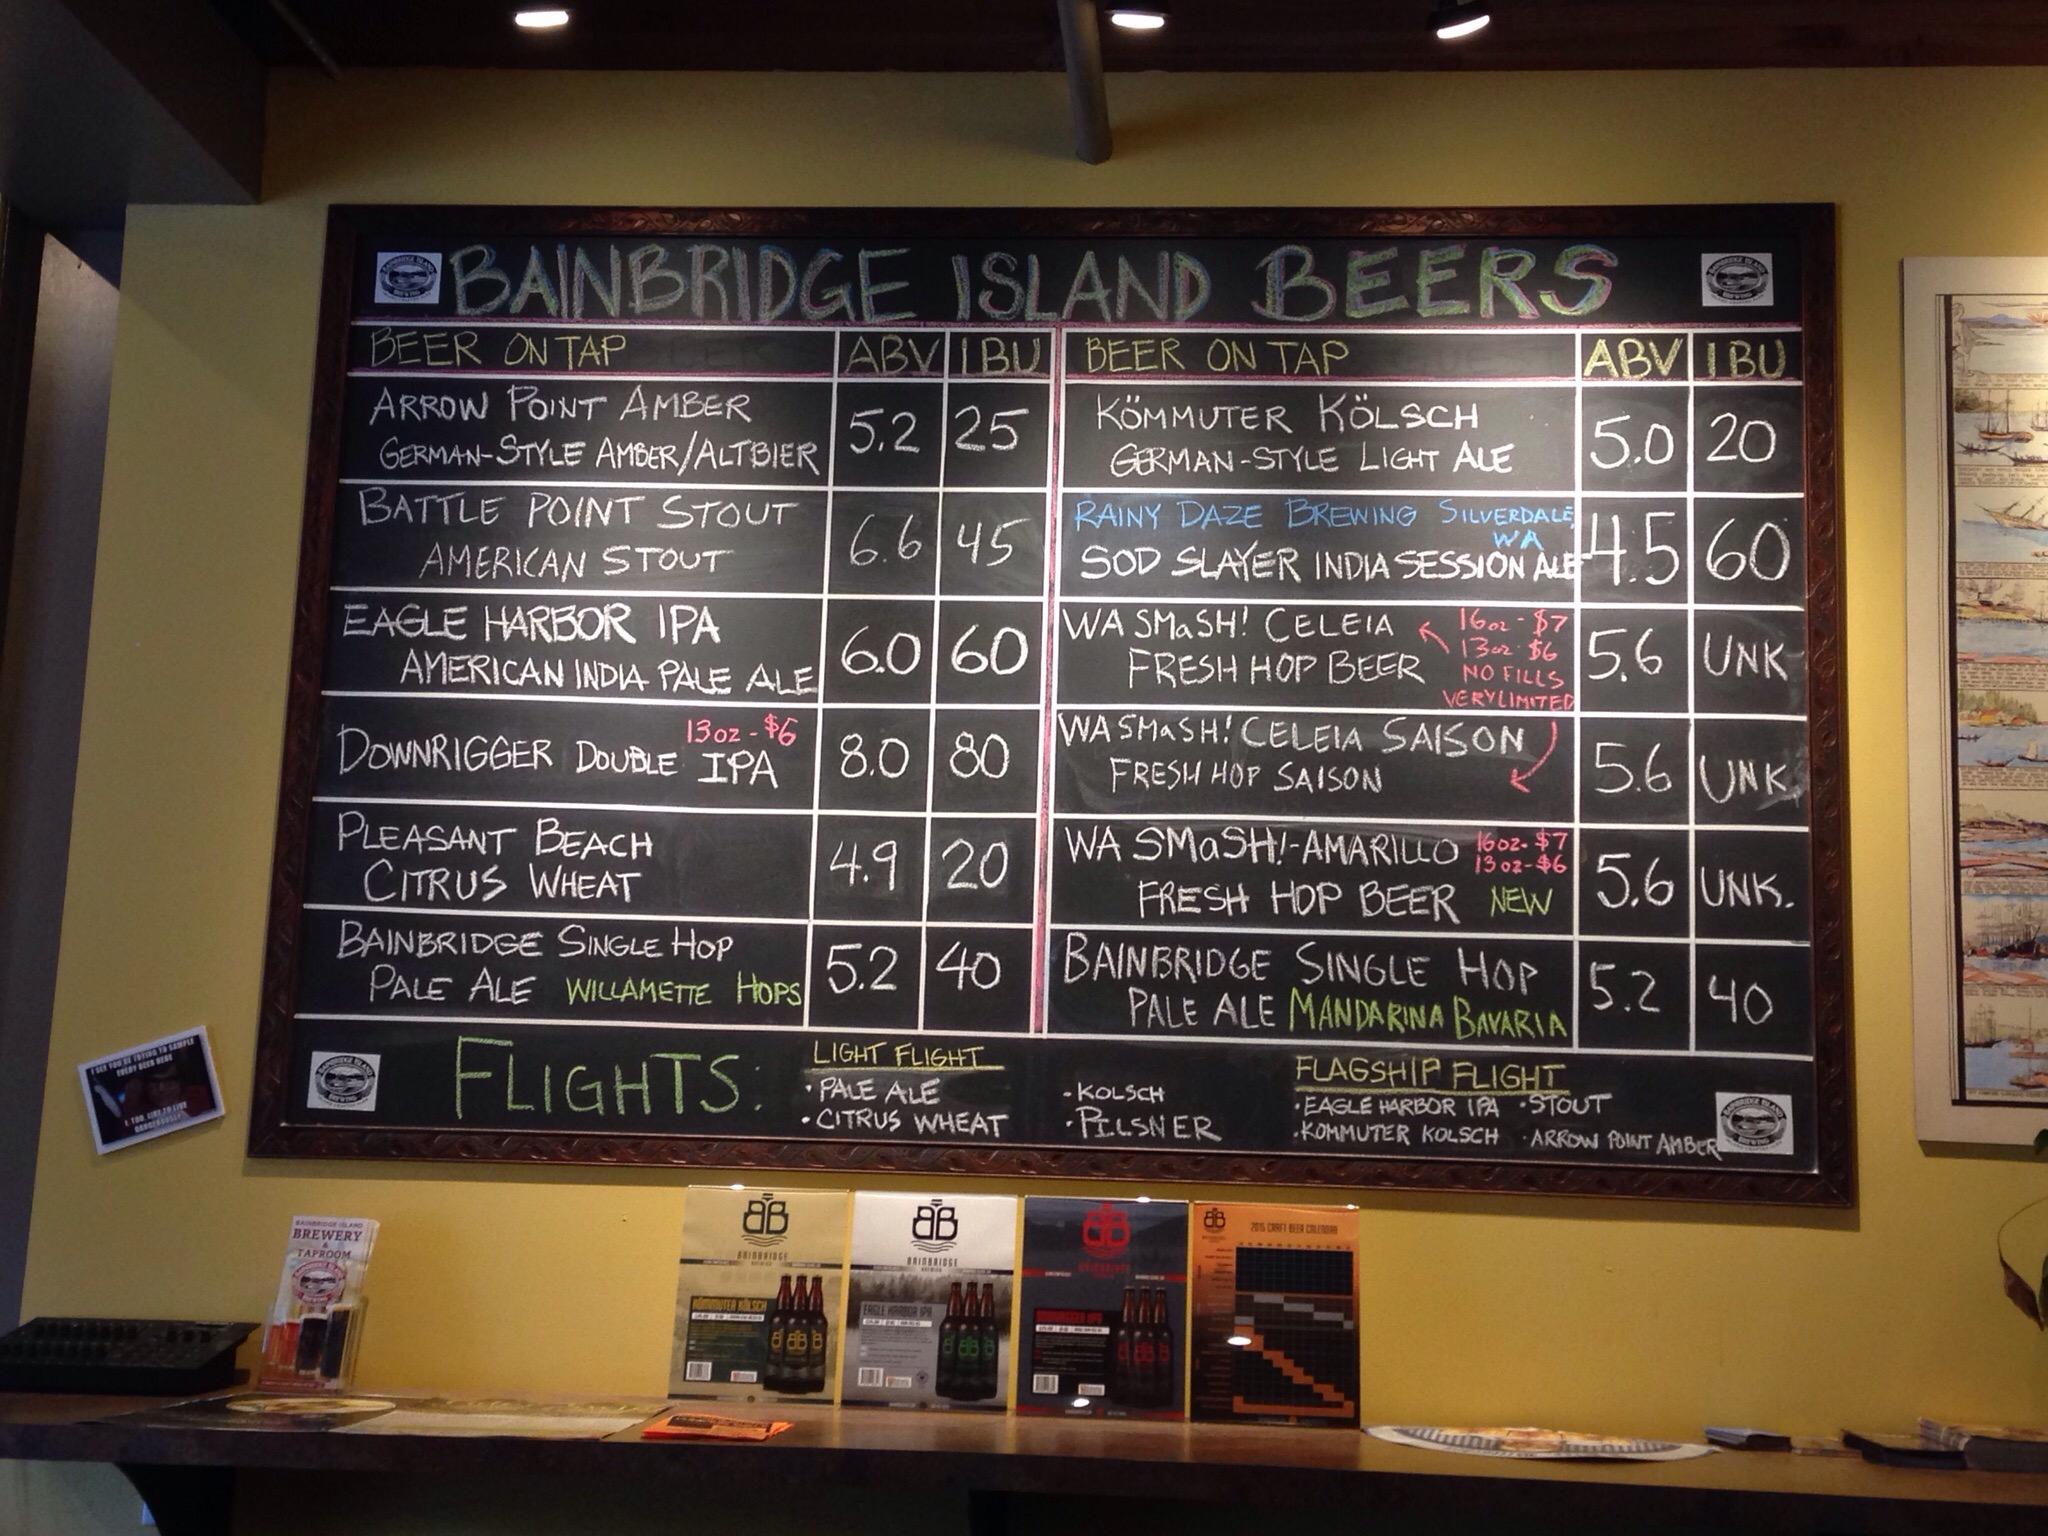 BAINBRIDGE ISLAND BEERS
BEER ON TAP ABV IBU
ARROW POINT AMBER
GERMAN-STYLE AMBER/ALTBIER 5.2 25
BATTLE POINT STOUT
AMERICAN STOUT 6.6 45
EAGLE HARBOR IPA
AMERICAN INDIA PALE ALE 6.0 60
13oz-$6
DOWNRIGGER DOUBLE IPA 8.0 80
PLEASANT BEACH
CITRUS WHEAT 4.9 20
BAINBRIDGE SINGLE HOP
PALE ALE WILLAMETTE HOPS 5.2 40
BEER ON TAP ABV IBU
KÖMMUTER KÖLSCH
GERMAN-STYLE LIGHT ALE 5.0 20
RAINY DAZE BREWING SILVERDALE,
WA
SOD SLAYER INDIA SESSION ALE 4.5 60
WA SMaSH! CELEIA
FRESH HOP BEER
16oz-$7
13oz-$6
NO FILLS
VERY LIMITED
5.6 UNK
WA SMaSH! CELEIA SAISON
FRESH HOP SAISON 5.6 UNK
WA SMaSH!-AMARILLO
16oz-$7
13oz-$6
FRESH HOP BEER NEW 5.6 UNK.
BAINBRIDGE SINGLE HOP
PALE ALE MANDARINA BAVARIA 5.2 40
FLIGHTS:
LIGHT FLIGHT
·PALE ALE ·KOLSCH
·CITRUS WHEAT ·PILSNER
FLAGSHIP FLIGHT
·EAGLE HARBOR IPA ·STOUT
·KOMMUTER KOLSCH ·ARROW POINT AMBER
BAINBRIDGE ISLAND
BREWING
I SEE YOU'RE TRYING TO SAMPLE
EVERY BEER HERE
I, TOO, LIKE TO LIVE
DANGEROUSLY
BAINBRIDGE ISLAND
BREWERY
&
TAPROOM
BB
BAINBRIDGE
BREWING
KÖMMUTER KÖLSCH
BB
BAINBRIDGE
BREWING
EAGLE HARBOR IPA
BB
BAINBRIDGE
DOWNRIGGER IPA
2015 CRAFT BEER CALENDAR